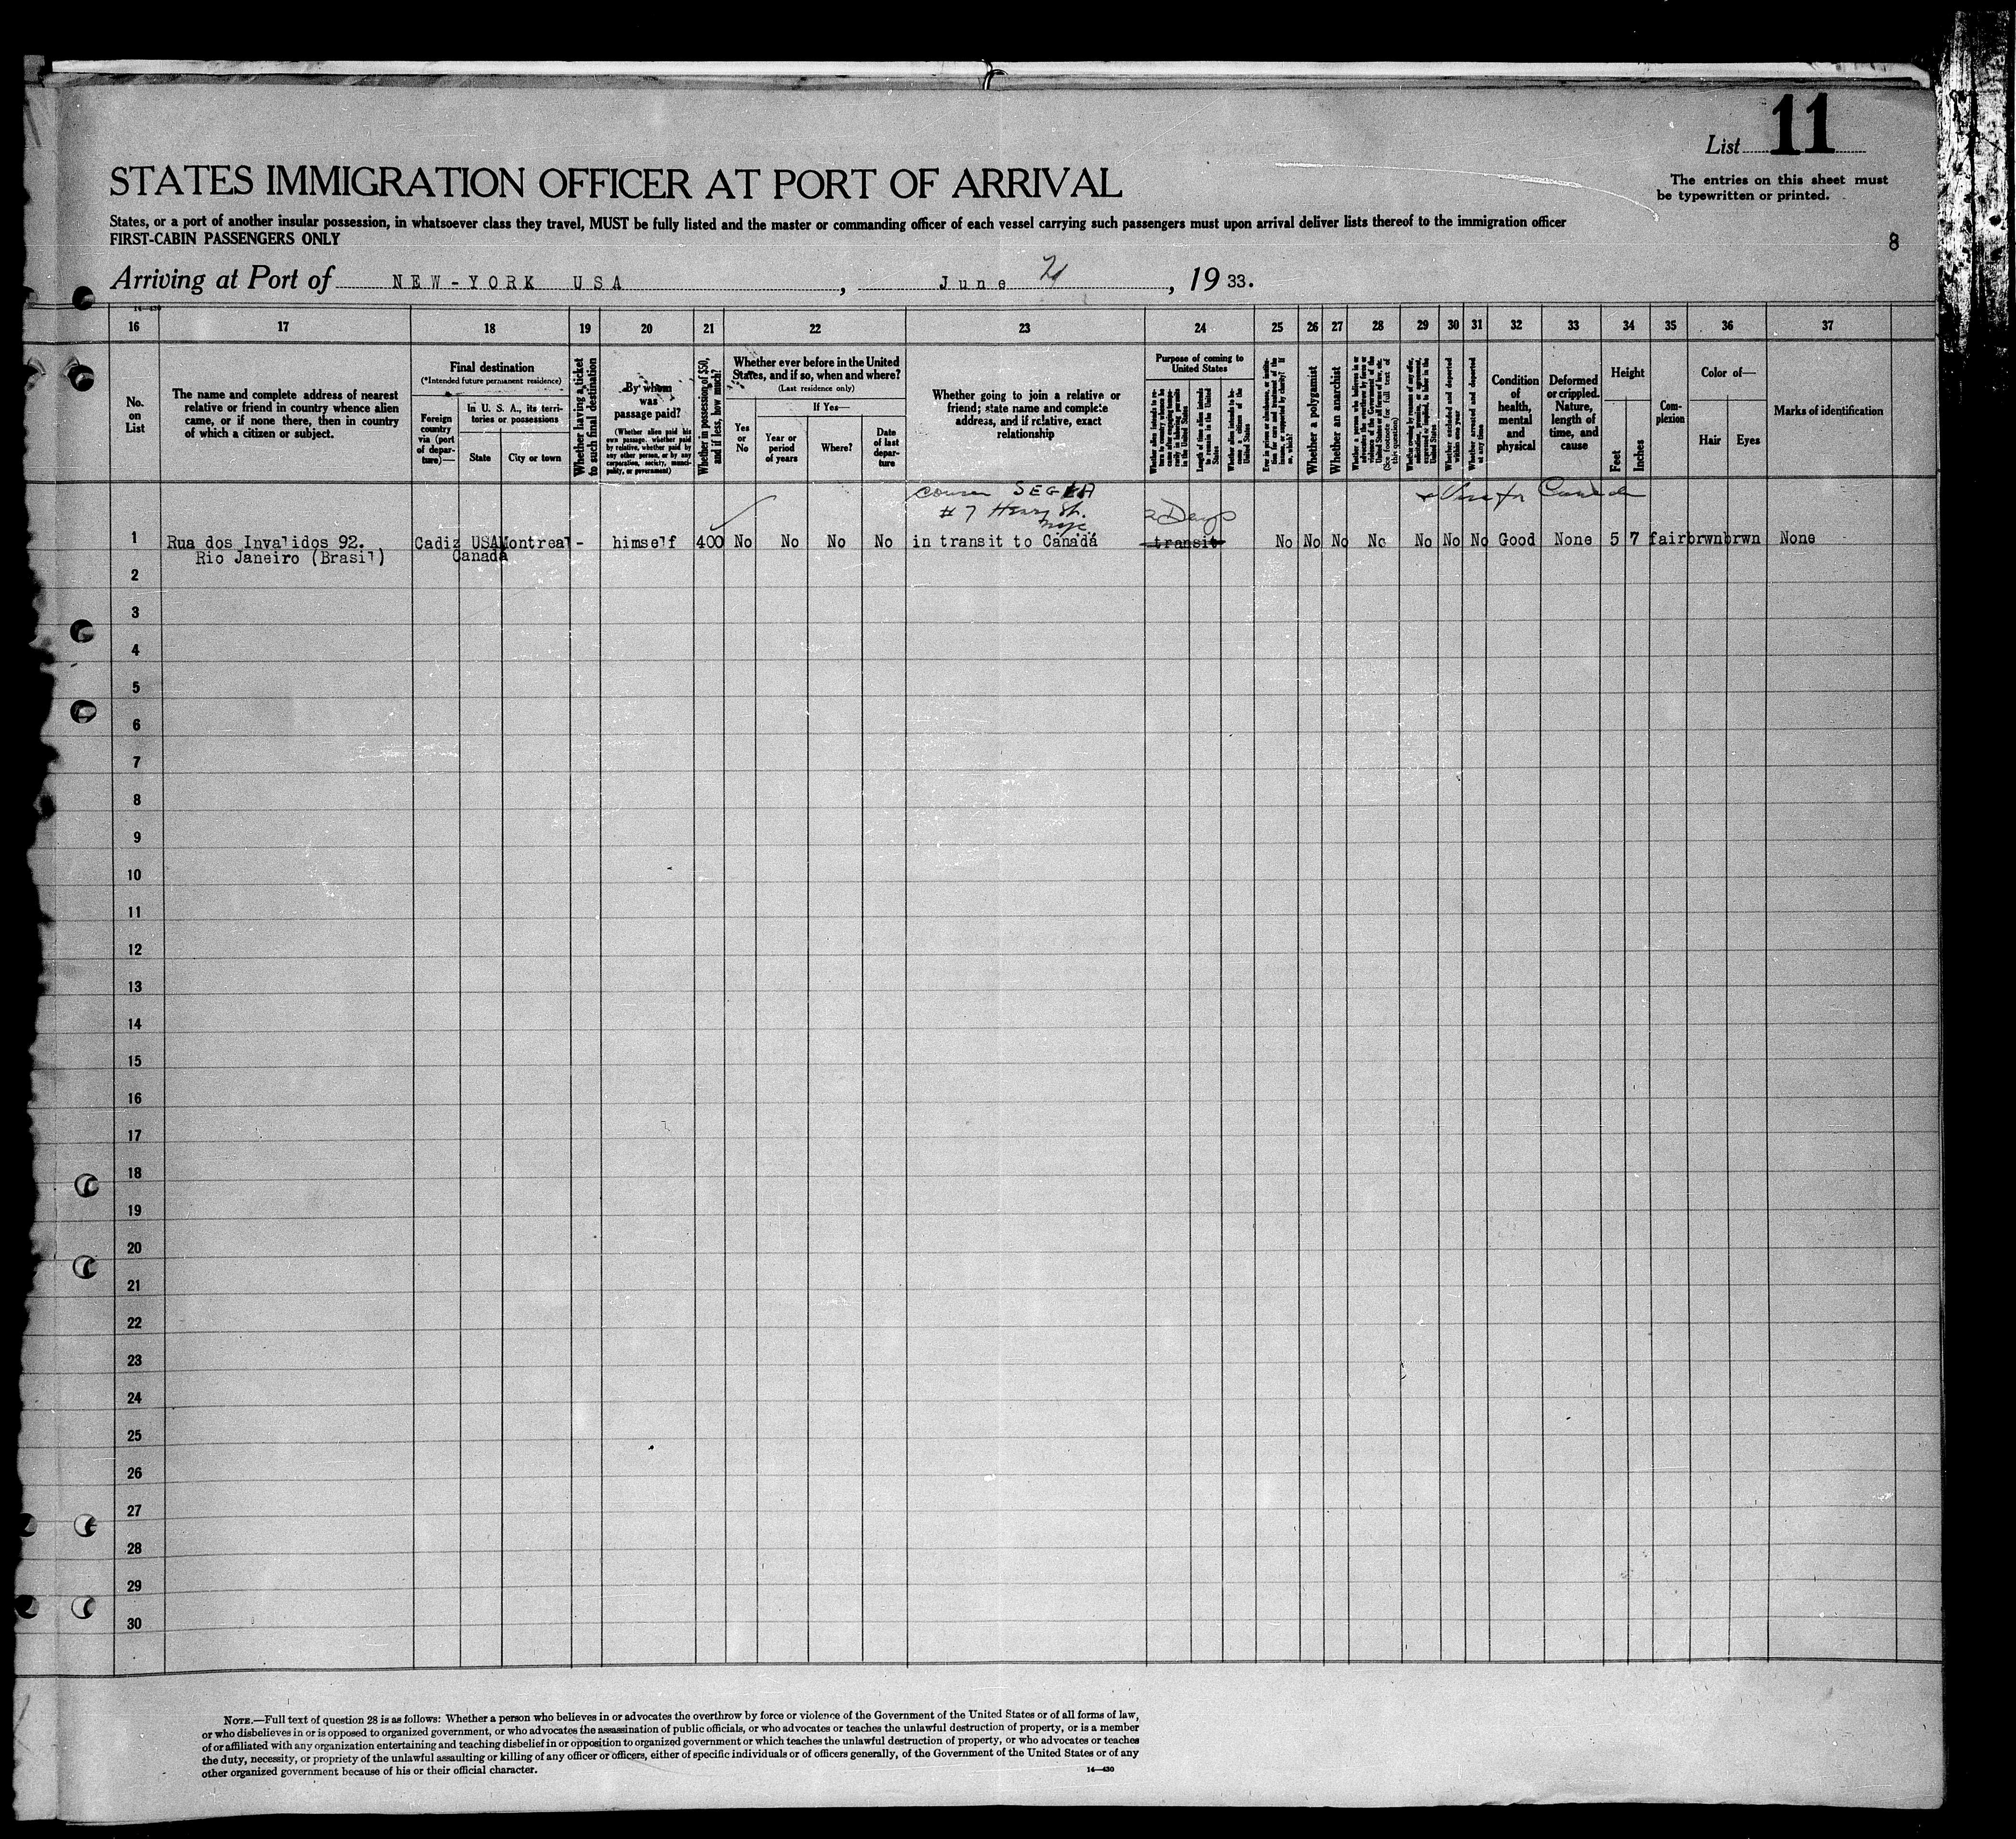 List 11
The entries on this sheet must
be typewritten or printed.
STATES IMMIGRATION OFFICER AT PORT OF ARRIVAL
States, or a port of another insular possession, in whatsoever class they travel, MUST be fully listed and the master or commanding officer of each vessel carrying such passengers must upon arrival deliver lists thereof to the immigration officer
FIRST-CABIN PASSENGERS ONLY
8
Arriving at Port of NEW-YORK USA, June 21, 1933.
14—430
16 17 18 19 20 21 22 23 24 25 26 27 28 29 30 31 32 33 34 35 36 37
No.
on
List
The name and complete address of nearest
relative or friend in country whence alien
came, or if none there, then in country
of which a citizen or subject.
Final destination
(*Intended future permanent residence)
Foreign
country
via (port
of depar-
ture)—
In U. S. A., its terri-
tories or possessions
State City or town
Whether having a ticket
to such final destination
By whom
was
passage paid?
(Whether alien paid his
own passage, whether paid
by relative, whether paid by
any other person, or by any
corporation, society, munici-
pality, or government)
Whether in possession of $50,
and if less, how much?
Whether ever before in the United
States, and if so, when and where?
(Last residence only)
Yes
or
No
If Yes—
Year or
period
of years
Where?
Date
of last
depar-
ture
Whether going to join a relative or
friend; state name and complete
address, and if relative, exact
relationship
Purpose of coming to
United States
Length of time alien intends
to remain in the United
States
Whether alien intends to be-
come a citizen of the
United States
Whether a polygamist
Whether an anarchist
Whether excluded and deported
within one year
Whether arrested and deported
at any time
Condition
of
health,
mental
and
physical
Deformed
or crippled.
Nature,
length of
time, and
cause
Height
Feet Inches
Com-
plexion
Color of—
Hair Eyes
Marks of identification
SEGRA
# 7 Henry St.
nyc
2 Days
Visa for Canada
1 Rua dos Invalidos 92. Cadiz USA Montreal - himself 400 No No No No in transit to Canada transit No No No No No No No Good None 5 7 fair brwn brwn None
Rio Janeiro (Brasil) Canada
2
3
4
5
6
7
8
9
10
11
12
13
14
15
16
17
18
19
20
21
22
23
24
25
26
27
28
29
30
NOTE.—Full text of question 28 is as follows: Whether a person who believes in or advocates the overthrow by force or violence of the Government of the United States or of all forms of law,
or who disbelieves in or is opposed to organized government, or who advocates the assassination of public officials, or who advocates or teaches the unlawful destruction of property, or is a member
of or affiliated with any organization entertaining and teaching disbelief in or opposition to organized government or which teaches the unlawful destruction of property, or who advocates or teaches
the duty, necessity, or propriety of the unlawful assaulting or killing of any officer or officers, either of specific individuals or of officers generally, of the Government of the United States or of any
other organized government because of his or their official character.
14—430